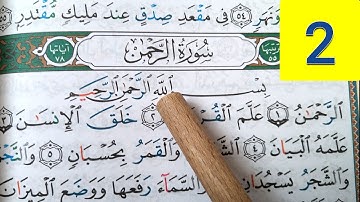 وَنَهَرٍ ٥٤ فِي مَقْعَدِ صِدْقٍ عِندَ مَلِيكٍ مُّقْتَدِرٍ
2
آيَاتُهَا ٧٨
سُورَةُ الرَّحْمَٰن
٥٥
بِسْمِ اللَّهِ الرَّحْمَٰنِ الرَّحِيمِ
الرَّحْمَٰنُ ١ عَلَّمَ الْقُرْ ٢ خَلَقَ الْإِنسَانَ ٣
عَلَّمَهُ الْبَيَانَ ٤ الشَّمْ وَالْقَمَرُ بِحُسْبَانٍ ٥ وَالنَّجْ
وَالشَّجَرُ يَسْجُدَانِ وَالسَّمَاءَ رَفَعَهَا وَوَضَعَ الْمِيزَانَ